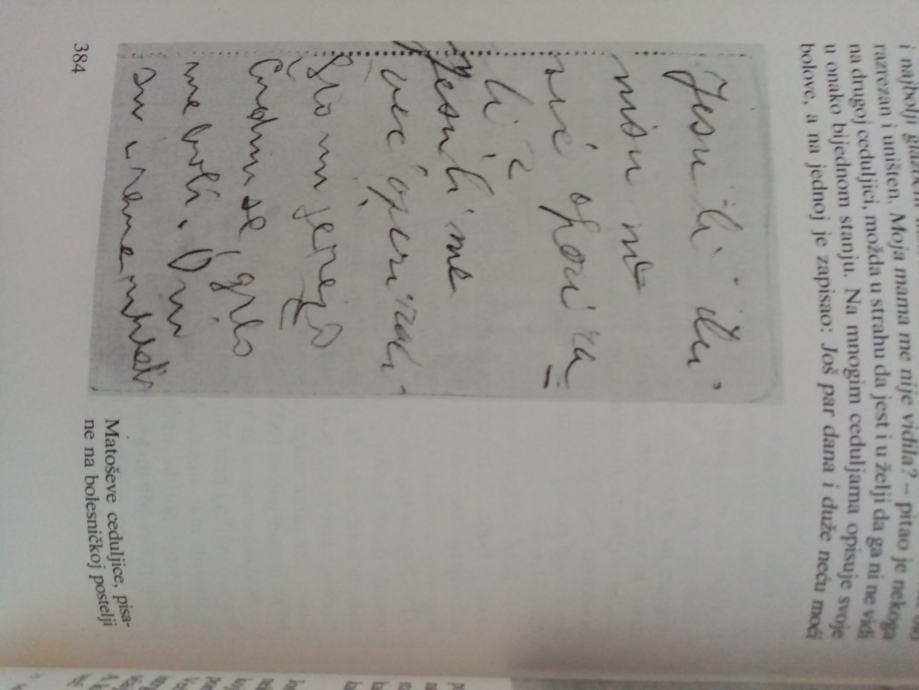 i najbolji
razrezan i uništen. Moja mama me nije vidila? – pitao je nekoga
na drugoj ceduljici, možda u strahu da jest i u želji da ga ni ne vidi
u onako bijednom stanju. Na mnogim ceduljama opisuje svoje
bolove, a na jednoj je zapisao: Još par dana i duže neću moći
Jesu li
nisu me
već operira
li?
Jesu li me
već operirali.
Što mi je
Čudim se, grlo
me boli.
Matoševe ceduljice, pisa-
ne na bolesničkoj postelji
384